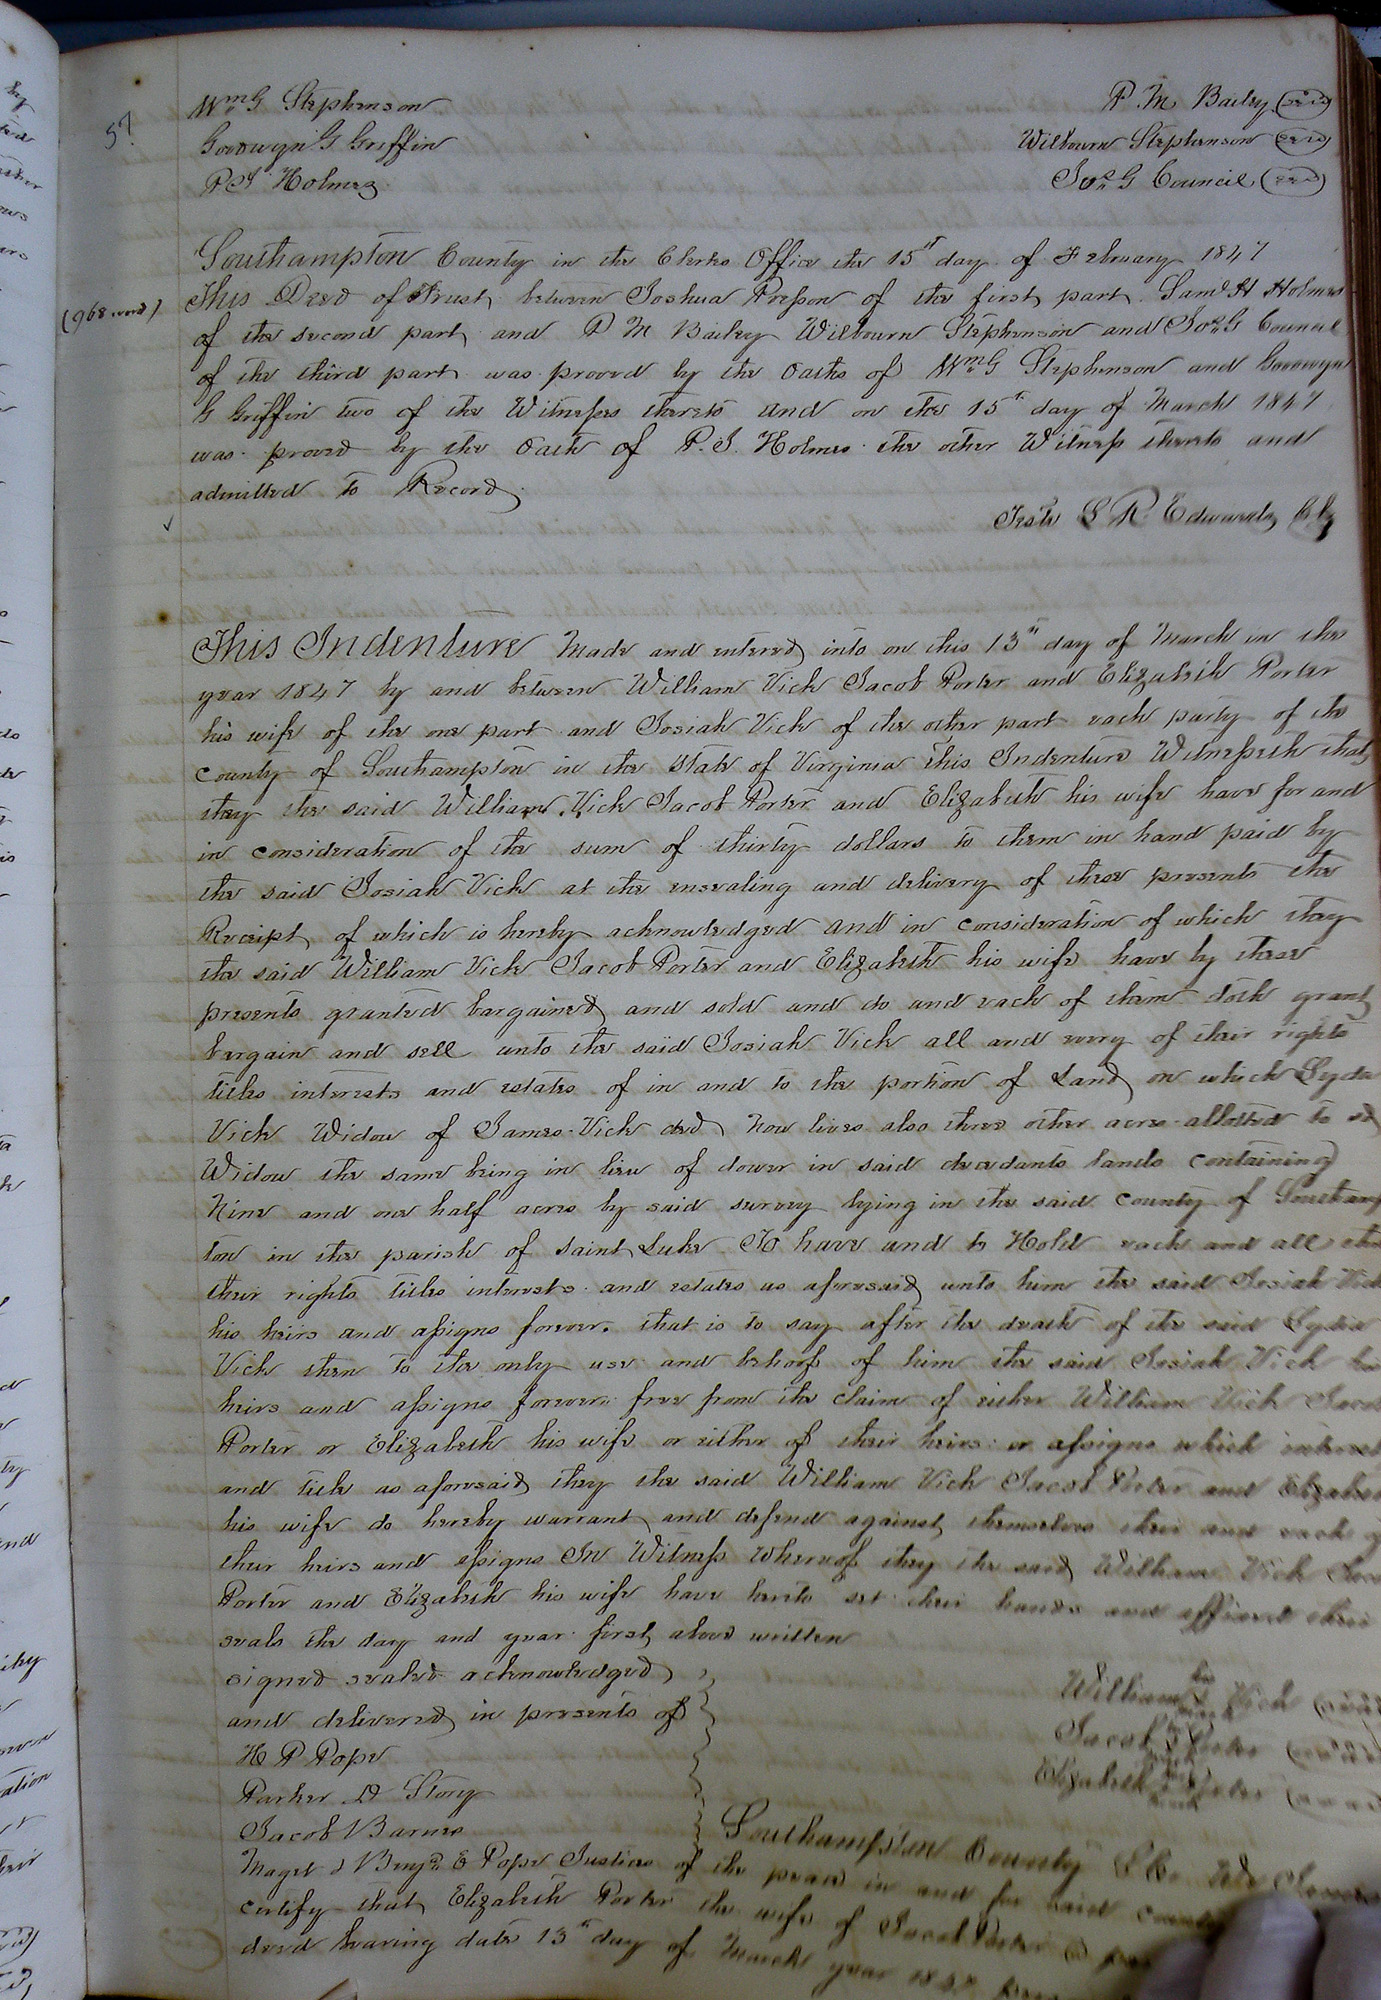 57
WmG Stephenson
P. M. Bailey (seal)
Goodwyn G Griffin
Wilbourn Stephenson (seal)
P. J. Holmes
Jos G Council (seal)
Southampton County in the Clerks Office the 15st day of February 1847
(968 word)
This Deed of Trust between Joshua Presson of the first part Saml H Holmes
of the second part and P M Bailey Wilbourn Stephenson and Jos G Council
of the third part was proved by the Oaths of WmG Stephenson and Goodwyn
G Griffin two of the Witnesses thereto and on the 15th day of March 1847
was proved by the Oath of P. J. Holmes the other Witness thereto and
admitted to Record
Teste L R Edwards Clk
This Indenture Made and entered into on this 13th day of March in the
year 1847 by and between William Vick Jacob Porter and Elizabeth Porter
his wife of the one part and Josiah Vick of the other part each party of the
county of Southampton in the State of Virginia this Indenture Witnesseth that
they the said William Vick Jacob Porter and Elizabeth his wife have for and
in consideration of the sum of thirty dollars to them in hand paid by
the said Josiah Vick at the ensealing and delivery of these presents the
Receipt of which is hereby acknowledged and in consideration of which they
the said William Vick Jacob Porter and Elizabeth his wife have by these
presents granted bargained and sold and do and each of them doth grant
bargain and sell unto the said Josiah Vick all and every of their rights
titles interests and estates of in and to the portion of Land on which Lyda
Vick Widow of James Vick decd now lives also three other acres allotted to sd
Widow the same being in lieu of dower in said decedants lands containing
Nine and one half acres by said survey lying in the said county of Southamp
ton in the parish of Saint Luke To have and to Hold each and all the
their rights titles interests and estates as aforesaid unto him the said Josiah Vick
his heirs and assigns forever. that is to say after the death of the said Lydia
Vick then to the only use and behoof of him the said Josiah Vick his
heirs and assigns forever free from the claim of either William Vick Jacob
Porter or Elizabeth his wife or either of their heirs or assigns which interest
and title as aforesaid they the said William Vick Jacob Porter and Elizabeth
his wife do hereby warrant and defend against themselves their and each of
their heirs and assigns In Witness Whereof they the said William Vick Jacob
Porter and Elizabeth his wife have hereto set their hands and affixed their
seals the day and year first above written
signed sealed acknowledged
and delivered in presents of
William his mark Vick (seal)
Jacob his mark Porter (seal)
Elizabeth her mark Porter (seal)
H P Pope
Parker D Story
Jacob Barnes
Southampton County
Maget & Benjn E Pope Justices of the peace in and for said county
certify that Elizabeth Porter the wife of Jacob Porter
deed bearing date 13th day of March year 1847